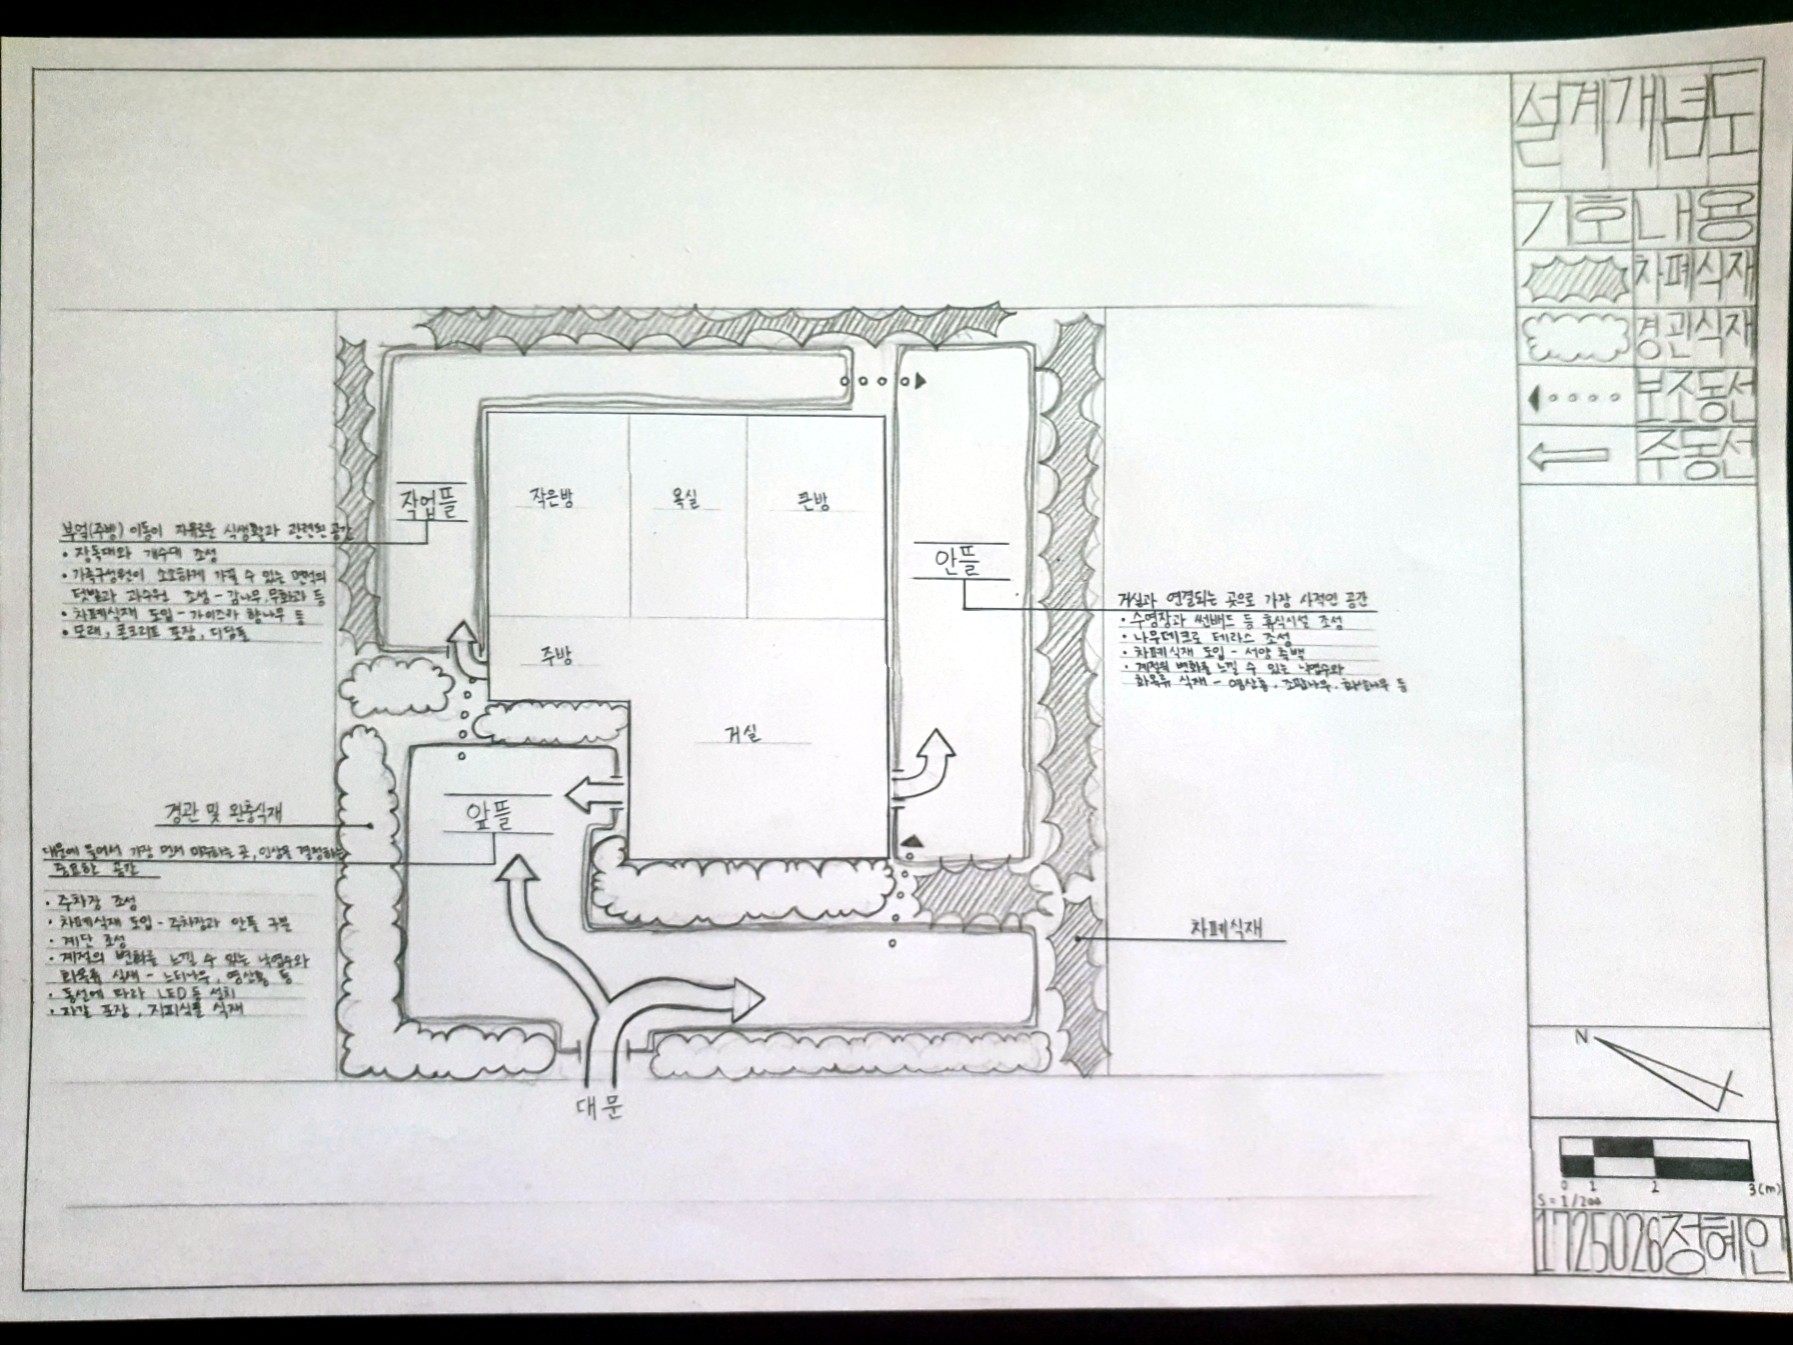 설계개념도
기호 내용
차폐식재
경관식재
보조동선
주동선
작은방
욕실
큰방
작업뜰
부엌(주방) 이동이 자유로운 식생활과 관련된 공간
• 장독대와 개수대 조성
• 가족구성원이 소소하게 가꿀 수 있는 면적의
텃밭과 과수원 조성 - 감나무, 무화과 등
• 차폐식재 도입 - 가이즈까 향나무 등
• 모래, 콘크리트 포장, 디딤돌
안뜰
거실과 연결되는 곳으로 가장 사적인 공간
• 수영장과 썬배드 등 휴식시설 조성
• 나무데크로 테라스 조성
• 차폐식재 도입 - 서양측백
• 계절의 변화를 느낄 수 있는 낙엽수와
화목류 식재 - 영산홍, 조팝나무, 화살나무 등
주방
거실
경관 및 완충식재
앞뜰
대문에 들어서 가장 먼저 마주하는 곳, 인상을 결정하는
중요한 공간
• 주차장 조성
• 차폐식재 도입 - 주차장과 안뜰 구분
• 계단 조성
• 계절의 변화를 느낄 수 있는 낙엽수와
화목류 식재 - 느티나무, 영산홍 등
• 동선에 따라 LED등 설치
• 자갈 포장, 지피식물 식재
차폐식재
대문
N
0 1 2 3(m)
S=1/200
1725026정혜인